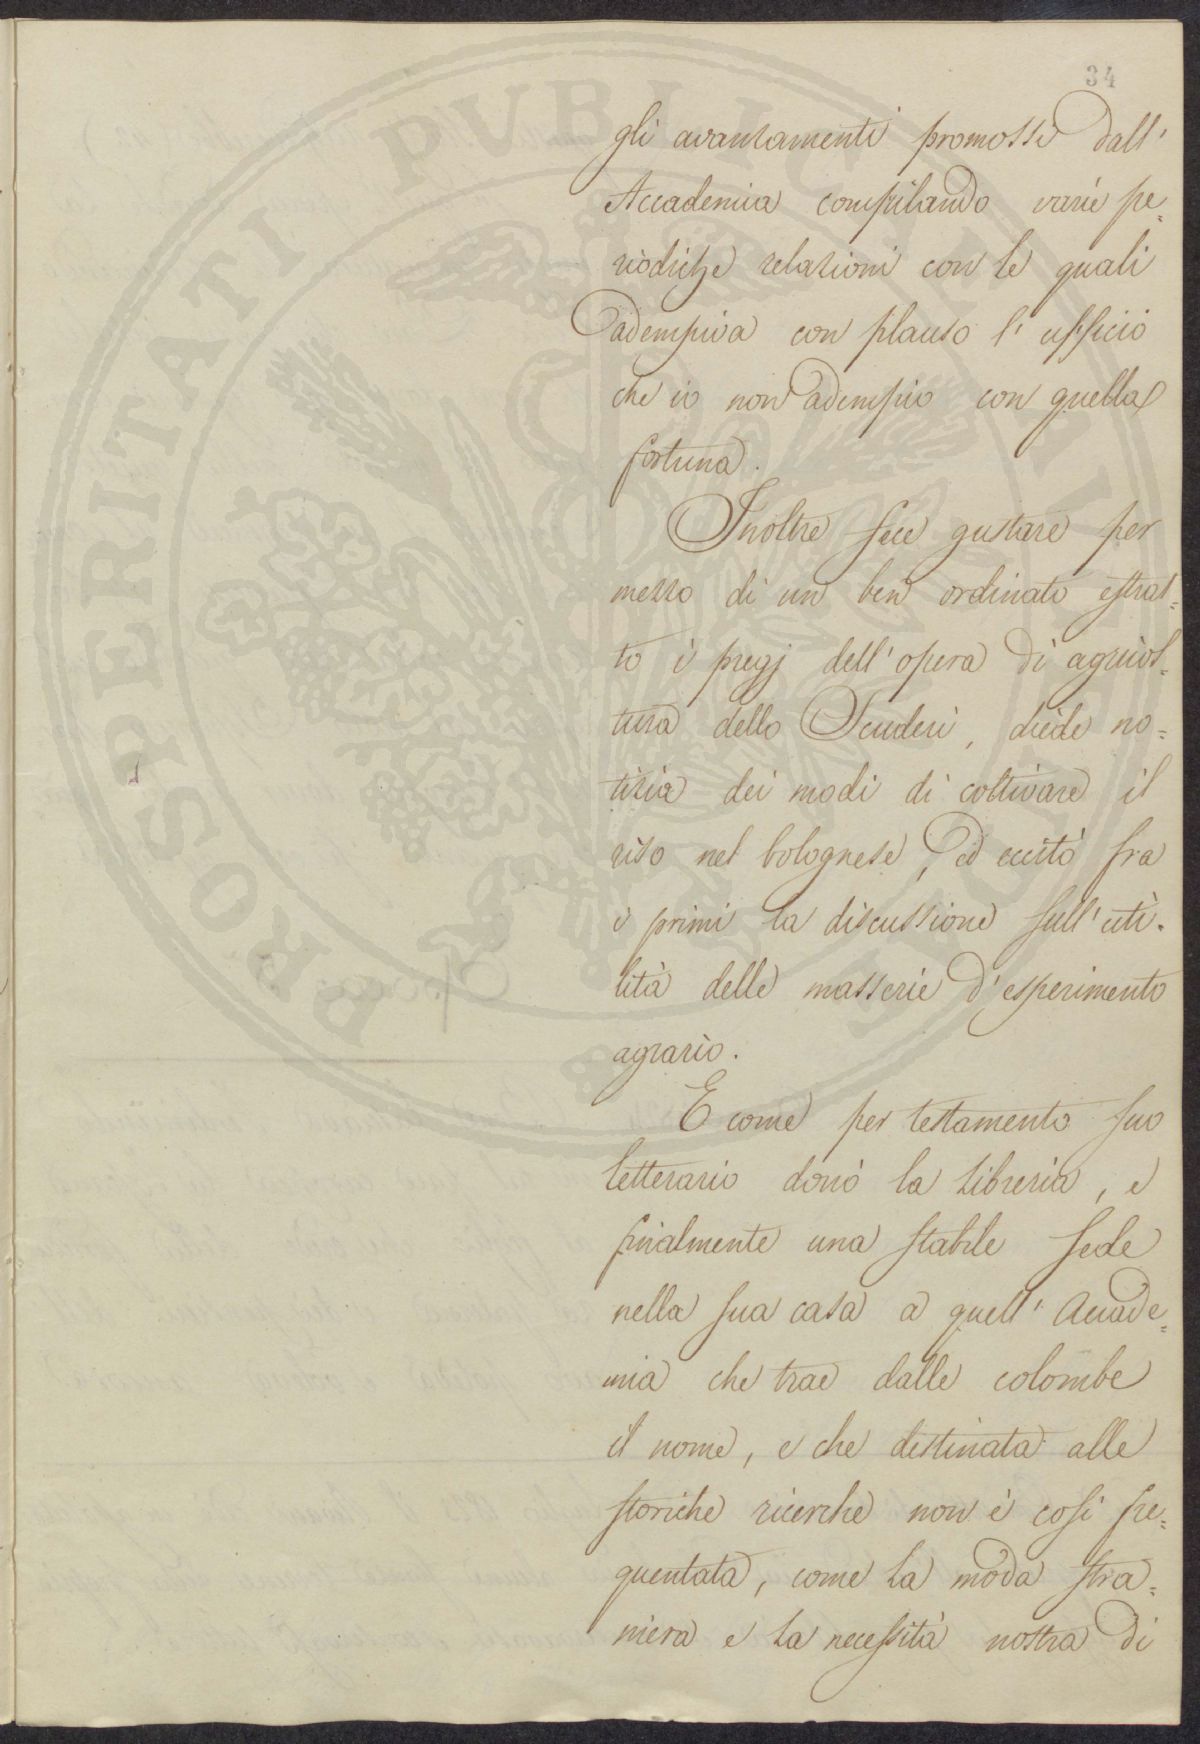 34
gli avanzamenti promossi dall'
Accademia compilando varie pe=
riodiche relazioni con le quali
adempiva con plauso l'ufficio
che io non adempio con quella
fortuna.
Inoltre fece gustare per
mezzo di un ben ordinato estrat=
to i pregj dell'opera di agricol=
tura dello Scuderi, diede no=
tizia dei modi di coltivare il
riso nel bolognese, ed eccitò fra
i primi la discussione sull'uti=
lità delle masserie d'esperimento
agrario.
E come per testamento suo
letterario donò la libreria, e
finalmente una stabile sede
nella sua casa a quell'Accade=
mia che trae dalle colombe
il nome, e che destinata alle
storiche ricerche non è così fre=
quentata, come la moda stra=
niera e la necessità nostra di
PROSPERITATI PUBLICAE